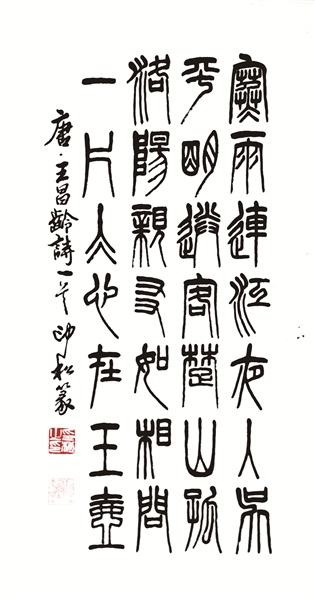 寒雨連江夜入吳
平明送客楚山孤
洛陽親友如相問
一片冰心在玉壺
唐·王昌齡詩一首 松篆